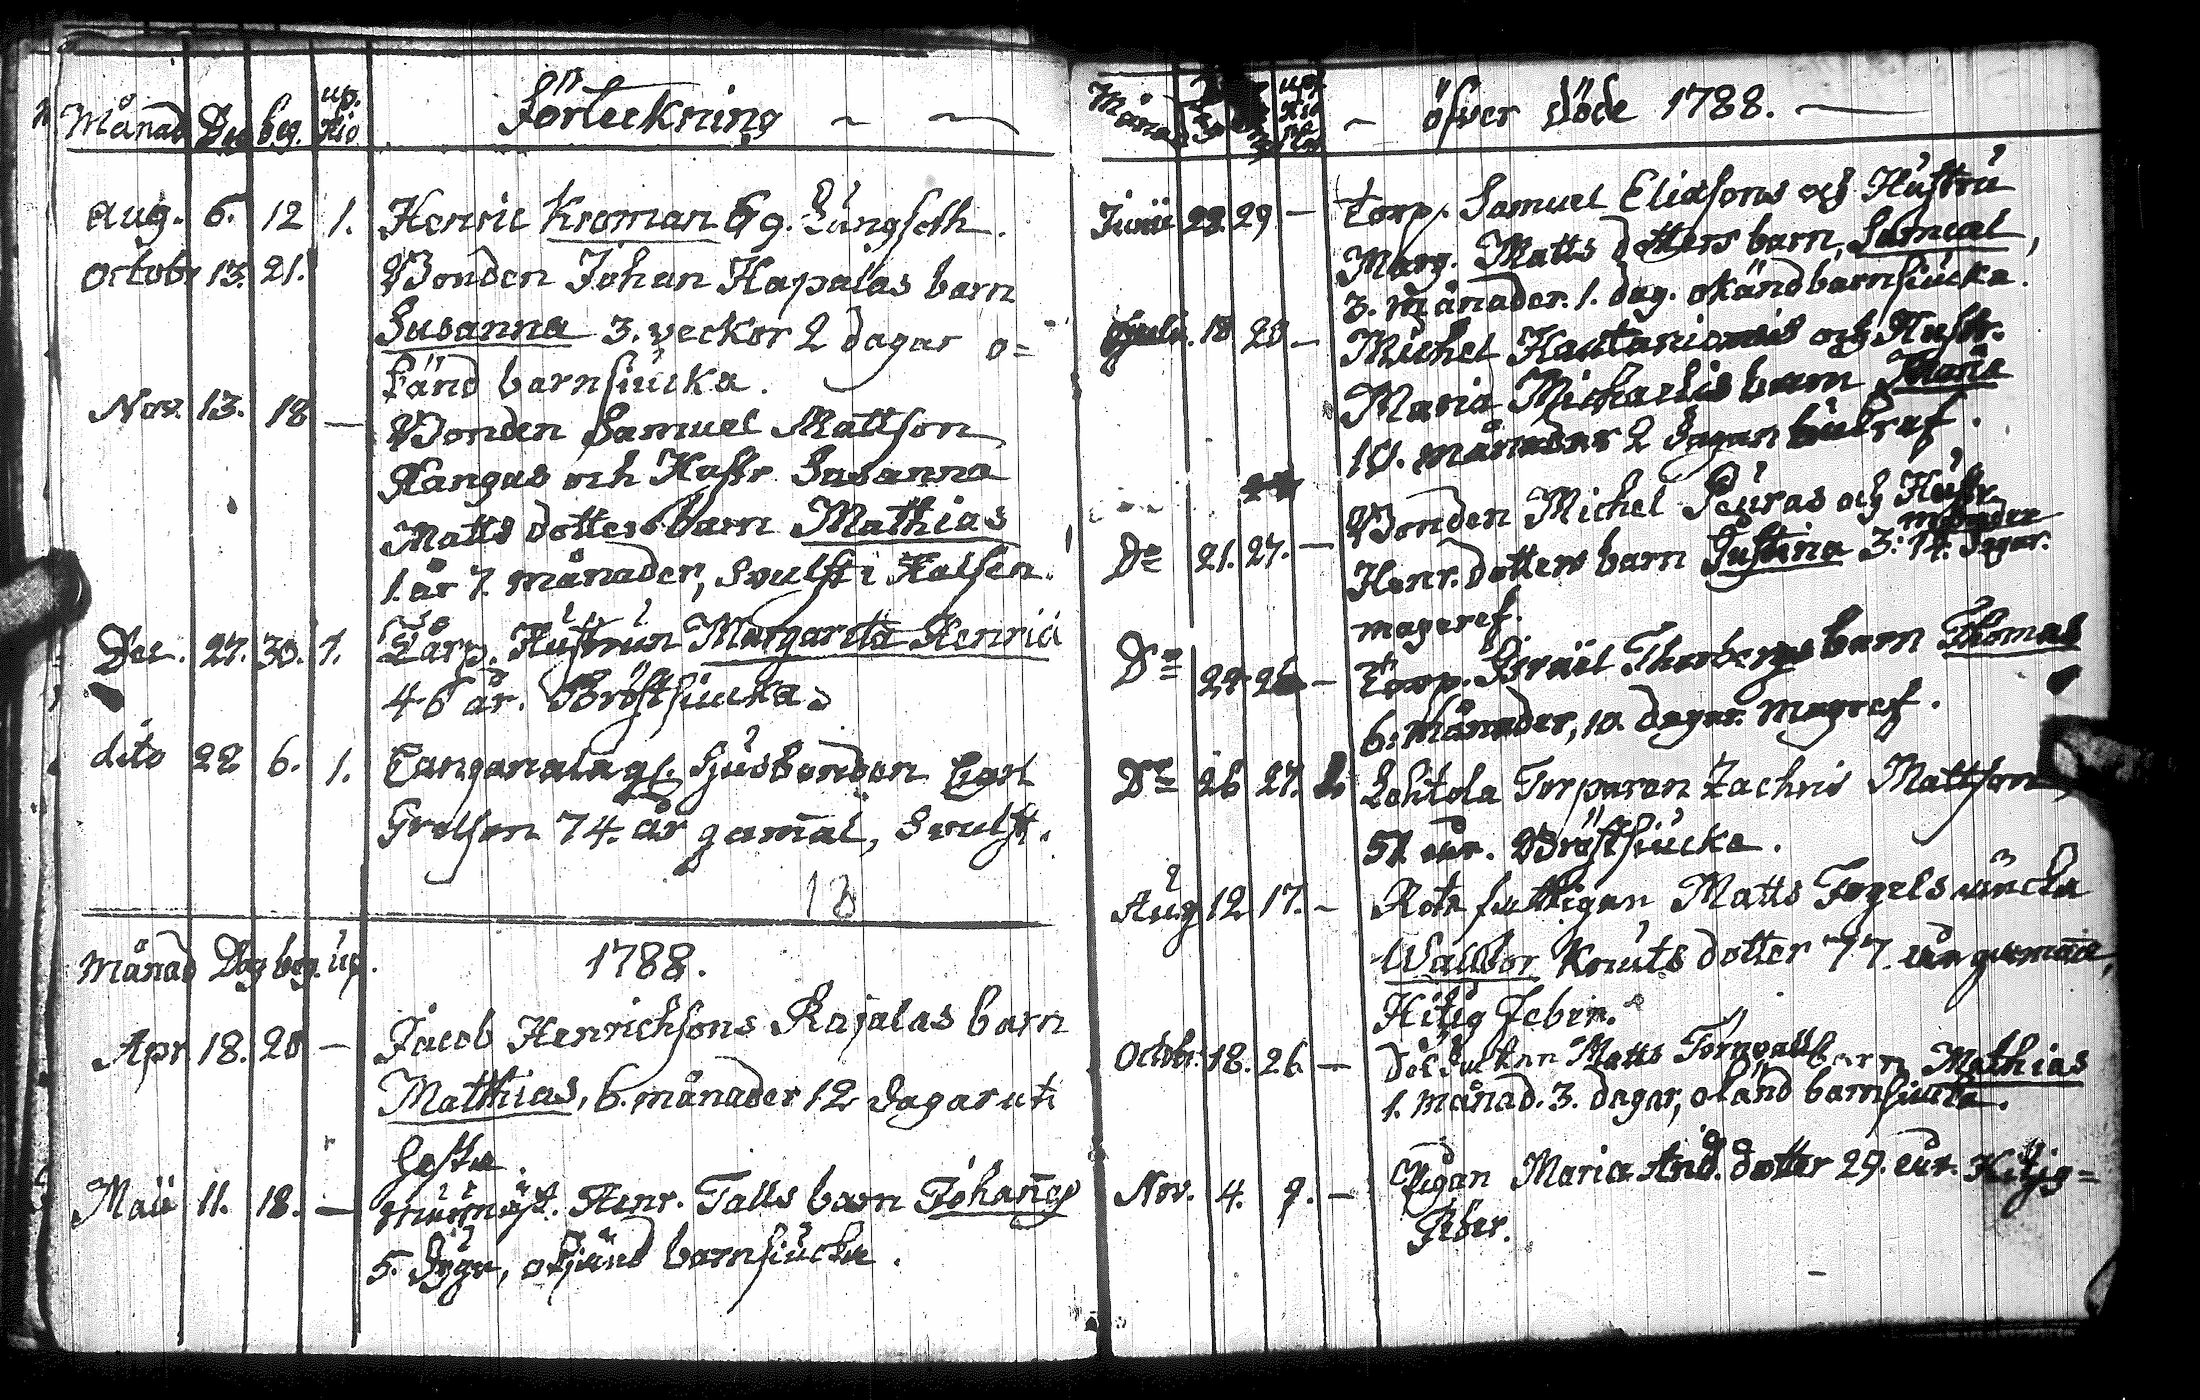 Månad Dag beg. up. Kio Förteckning
Aug. 6. 12 1. Henric Kroman Eg. Lungsoth.
Octobr 13. 21. Bonden Johan Hapalas barn
Susanna 3. veckor 2 dagar o=
känd barnsiucka.
Nov. 13. 18 — Bonden Samuel Mattson
Kangas och Hustr Susanna
Matts dotters barn Mathias
1. år 7. månader, Svulst i Halsen.
Dec. 27. 30. 1. Hustrun Margareta Henrici
46 år. Bröstsiucka.
dito 22 6. 1. Husbonden
74. år gam̄al, Svulst.
13
Månad Dag beg. up. 1788.
Apr 18. 20 — Jacob Henrichsons Rajalas barn
Matthias, 6. månader 12 dagar uti
Hosta.
Maii 11. 18. — Henr. Talls barn Johan̄es
5. okiänd barnsiucka.
Månad up Kio — öfver döde 1788. —
Junii 28. 29. — Torp. Samuel Eliasons och Hustru
Marg. Matts dotters barn, Samuel,
3. månader. 1. dag. okänd barnsiucka.
18 20 — Michel och Hustr.
Maria Michaelis barn
10. månader 2 dagar bukref.
Bonden Michel Peuras och Hustr.
månader
Do 21. 27. — Henr. dotters barn Justina 3. 14. dagar.
mageref.
Do — Torp. Israel Thorbergs barn Thomas
6. Månader, 10. dagar. Magref.
Do 26 27. Lohtola Torparen Zachris Mattson
år. Bröstsiucka.
Aug 12 17. — Rote fattigan Matts Fogels äncka
Wallbor Knuts dotter 77. år
Hitzig feber.
Octobr. 18. 26 — Matts Tornvalls barn Mathias
1. månad. 3. dagar, okänd barnsiucka.
Nov. 4. 9. — Pigan Maria And. dotter 29. år. Hitzig=
feber.